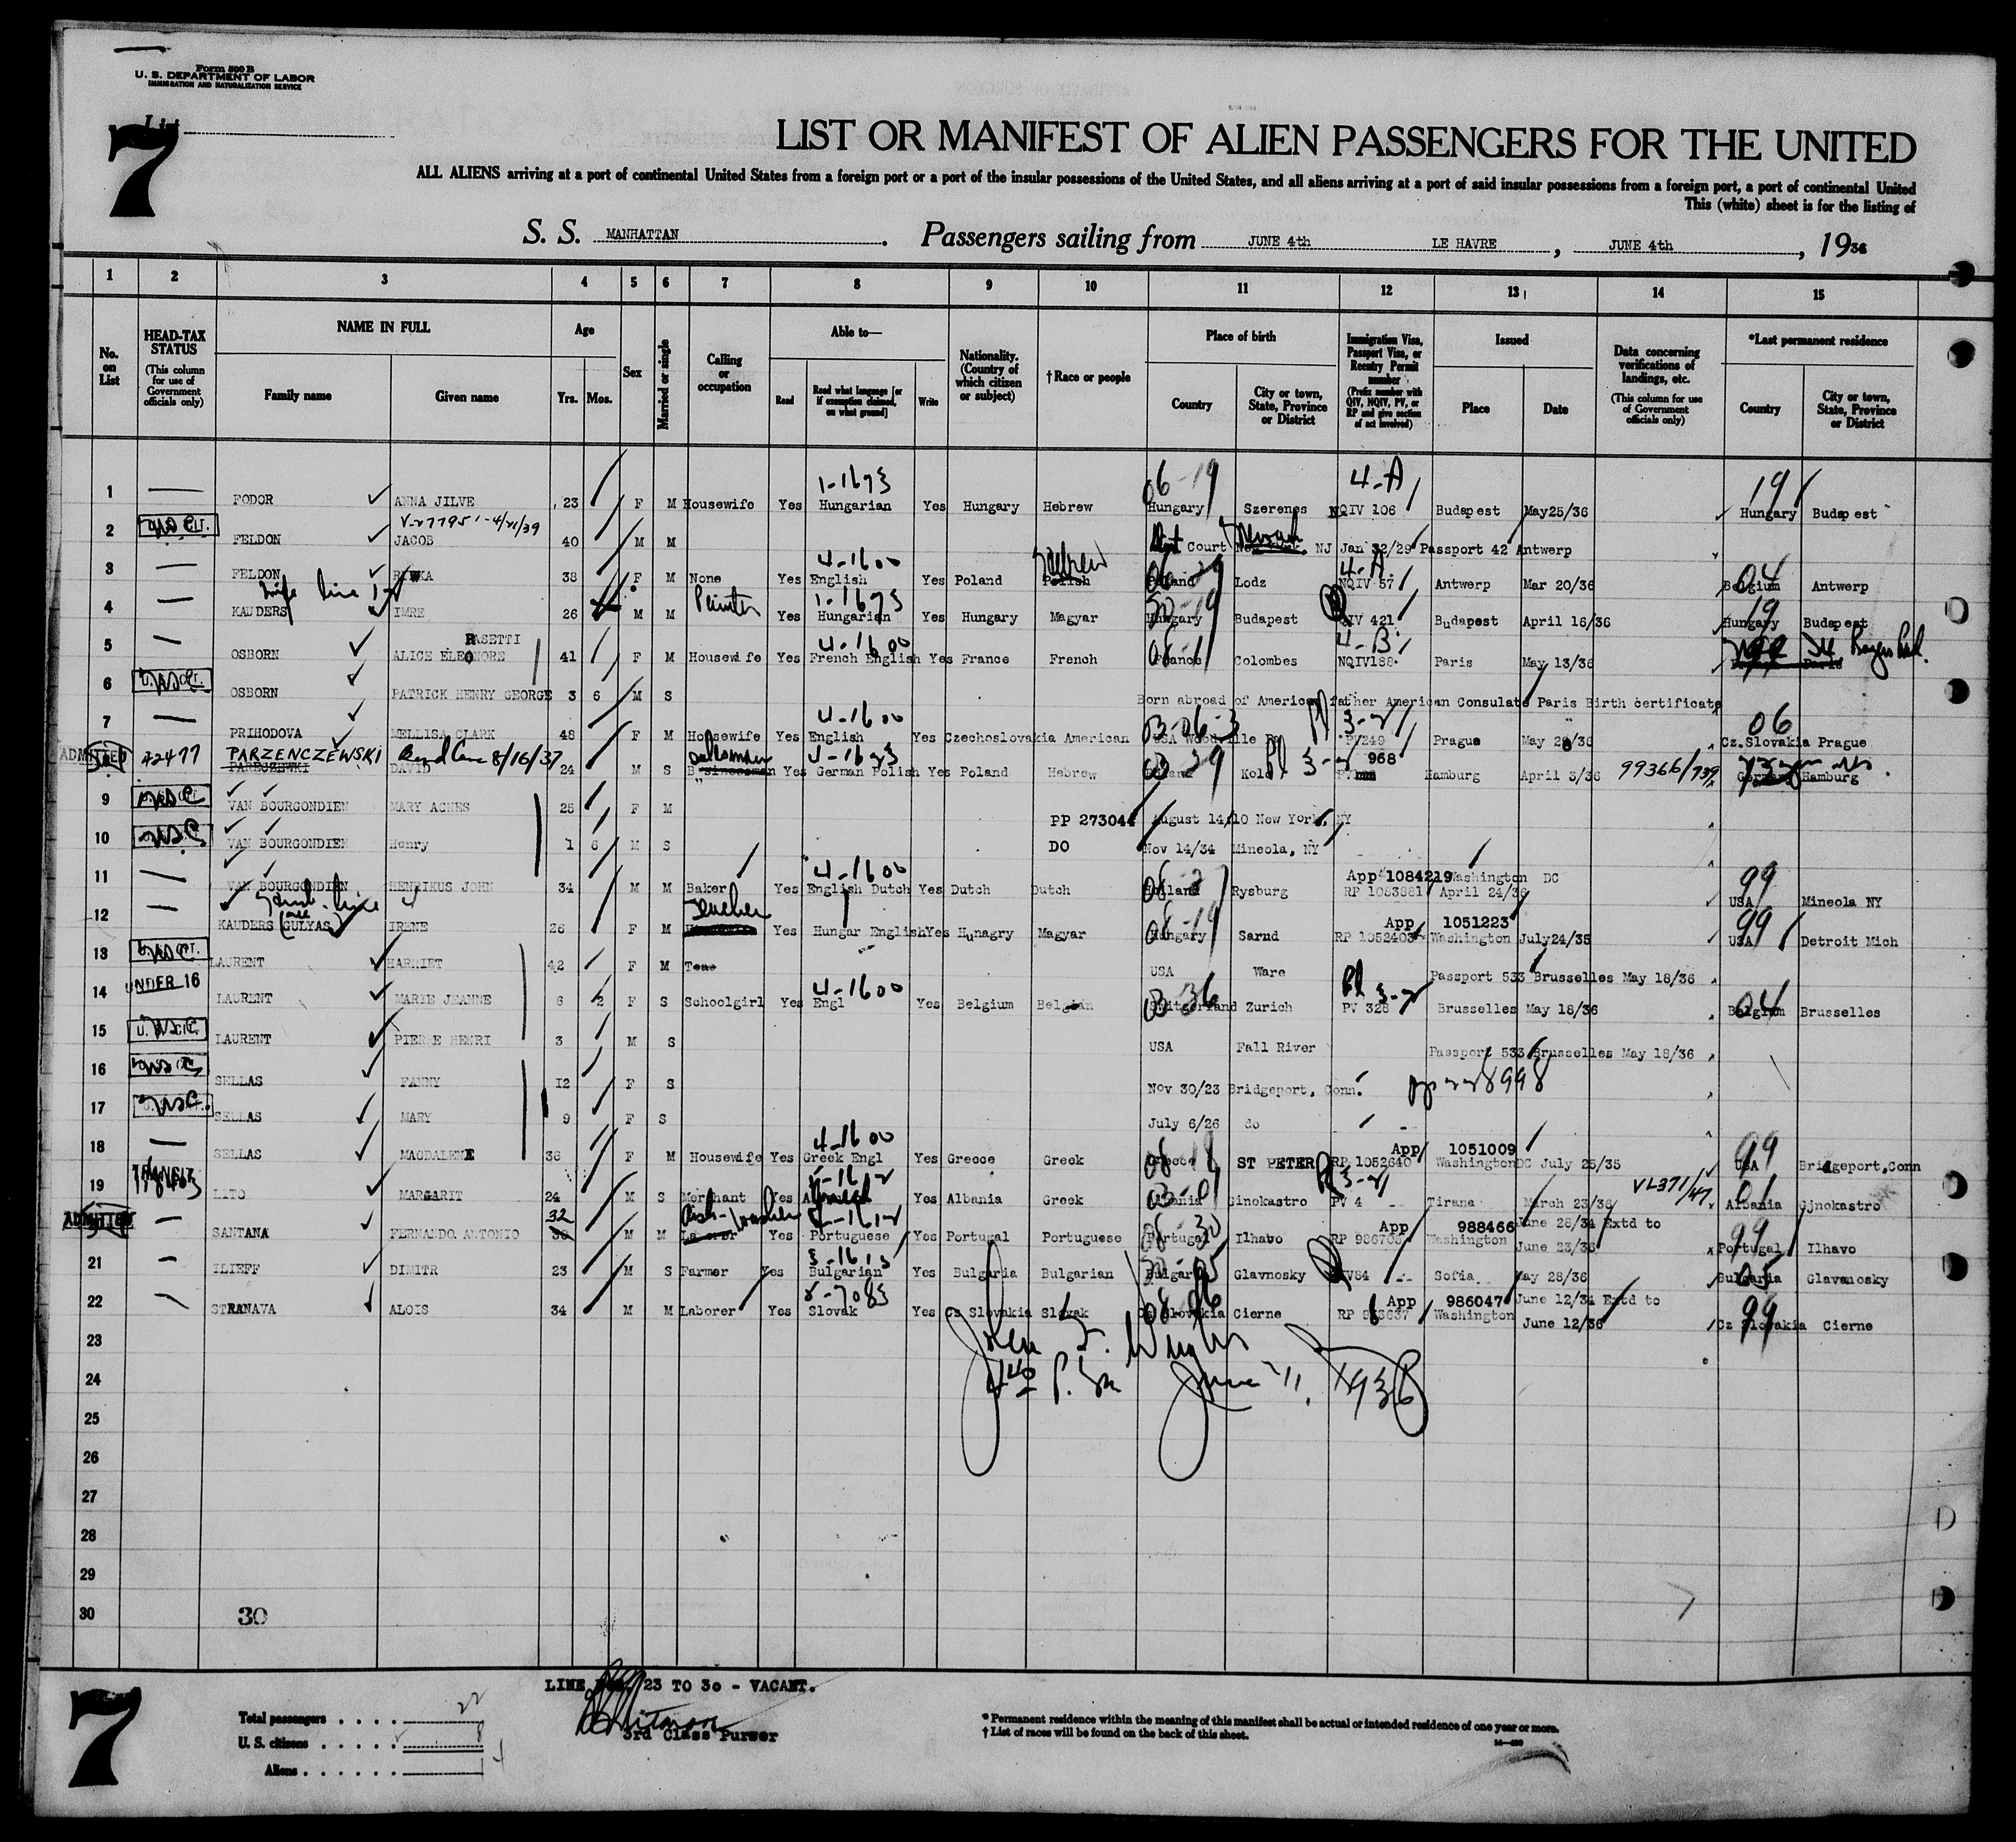 Form 500 B
U. S. DEPARTMENT OF LABOR
IMMIGRATION AND NATURALIZATION SERVICE
List
7
LIST OR MANIFEST OF ALIEN PASSENGERS FOR THE UNITED
ALL ALIENS arriving at a port of continental United States from a foreign port or a port of the insular possessions of the United States, and all aliens arriving at a port of said insular possessions from a foreign port, a port of continental United
This (white) sheet is for the listing of
S. S. MANHATTAN. Passengers sailing from JUNE 4th LE HAVRE, JUNE 4th, 1936
1 2 3 4 5 6 7 8 9 10 11 12 13 14 15
No. on List
HEAD-TAX STATUS (This column for use of Government officials only)
NAME IN FULL
Family name
Given name
Age
Yrs. Mos.
Sex
Married or single
Calling or occupation
Able to—
Read
Read what language [or if exemption claimed, on what ground]
Write
Nationality. (Country of which citizen or subject)
† Race or people
Place of birth
Country
City or town, State, Province or District
Immigration Visa, Passport Visa, or Reentry Permit number (Prefix number with QIV, NQIV, PV, or RP and give section of act involved)
Issued
Place
Date
Data concerning verifications of landings, etc. (This column for use of Government officials only)
*Last permanent residence
Country
City or town, State, Province or District
1-1693 06-19 4-A 19
1 FODOR ANNA JILVE 23 F M Housewife Yes Hungarian Yes Hungary Hebrew Hungary Szerenes NQIV 106 Budapest May25/36 Hungary Budapest
V-277951-4/21/39
2 FELDON JACOB 40 M M Court Newark NJ Jan 32/29 Passport 42 Antwerp
4-1600 Hebrew 4-A
3 FELDON 38 F M None Yes English Yes Poland Polish Poland Lodz NQIV 57 Antwerp Mar 20/36 Belgium 04 Antwerp
wife line 12 Painter 1-1693 19
4 KAUDERS IMRE 26 M M Yes Hungarian Yes Hungary Magyar Hungary Budapest QIV 421 Budapest April 16/36 Hungary Budapest
RASETTI 4-1600 4-B
5 OSBORN ALICE ELEONORE 41 F M Housewife Yes French English Yes France French France Colombes NQIV188 Paris May 13/36 Ill Rogers Park
6 U.S.CIT. OSBORN PATRICK HENRY GEORGE 3 6 M S Born abroad of American father American Consulate Paris Birth certificate
4-1600 03-06-3 3-2 06
7 PRIHODOVA MELLISA CLARK 48 F M Housewife Yes English Yes Czechoslovakia American USA PV249 Prague May 28/36 Cz.Slovakia Prague
ADMITTED 42477 PARZENCZEWSKI 8/16/37 Salesman 4-1623 3-2 968 99366/739
DAVID 24 M S Businessman Yes German Polish Yes Poland Hebrew Poland Kolo Hamburg April 3/36 Germany Hamburg
9 VAN BOURGONDIEN MARY AGNES 25 F M PP 273044 August 14/10 New York, NY
10 VAN BOURGONDIEN Henry 1 6 M S DO Nov 14/34 Mineola, NY
4-1600 App 1084219 99
11 VAN BOURGONDIEN HENRIKUS JOHN 34 M M Baker Yes English Dutch Yes Dutch Dutch Holland Rysburg RP 1083881 Washington DC April 24/36 USA Mineola NY
line 4 Teacher 06-19 App 1051223 99
12 KAUDERS (nee GULYAS) IRENE 26 F M Yes Hungar English Yes Hunagry Magyar Hungary Sarud RP 1052403 Washington July24/35 USA Detroit Mich
13 LAURENT HARRIET 42 F M USA Ware Passport 533 Brusselles May 18/36
UNDER 16 4-1600 03-36 3-2 04
14 LAURENT MARIE JEANNE 6 2 F S Schoolgirl Yes Engl Yes Belgium Belgian Switzerland Zurich PV 328 Brusselles May 18/36 Belgium Brusselles
15 LAURENT PIERRE HENRI 3 M S USA Fall River Passport 533 Brusselles May 18/36
16 SELLAS FANNY 12 F S Nov 30/23 Bridgeport, Conn. pp 228998
17 SELLAS MARY 9 F S July 6/26 do
4-1600 App 1051009 99
18 SELLAS MAGDALENE 36 F M Housewife Yes Greek Engl Yes Greece Greek Greece ST PETER RP 1052640 Washington DC July 25/35 USA Bridgeport,Conn
TRANSIT 3-2 VL371/47 01
19 LITO MARGARIT 24 M S Merchant Yes Yes Albania Greek Albania Ginokastro PV 4 Tirana March 23/36 Albania Gjnokastro
ADMITTED 32 Dish-washer App 988466 June 28/34 Extd to 99
SANTANA FERNANDO ANTONIO M M Laborer Yes Portuguese Yes Portugal Portuguese Portugal Ilhavo RP 986708 Washington June 23/36 Portugal Ilhavo
3-1613 05
21 ILIEFF DIMITR 23 M S Farmer Yes Bulgarian Yes Bulgaria Bulgarian Bulgaria Glavnosky Sofia May 28/36 Bulgaria Glavanosky
App 986047 June 12/34 Extd to 99
22 STRANAVA ALOIS 34 M M Laborer Yes Slovak Yes Cz Slovakia Slovak Cz Slovakia Cierne RP Washington June 12/36 Cz Slovakia Cierne
23
June 11, 1936
24
25
26
27
28
29
30 30
LINE 23 TO 30 - VACANT.
7
3rd Class Purser
Total passengers 22
U. S. citizens 8
Aliens
* Permanent residence within the meaning of this manifest shall be actual or intended residence of one year or more.
† List of races will be found on the back of this sheet.